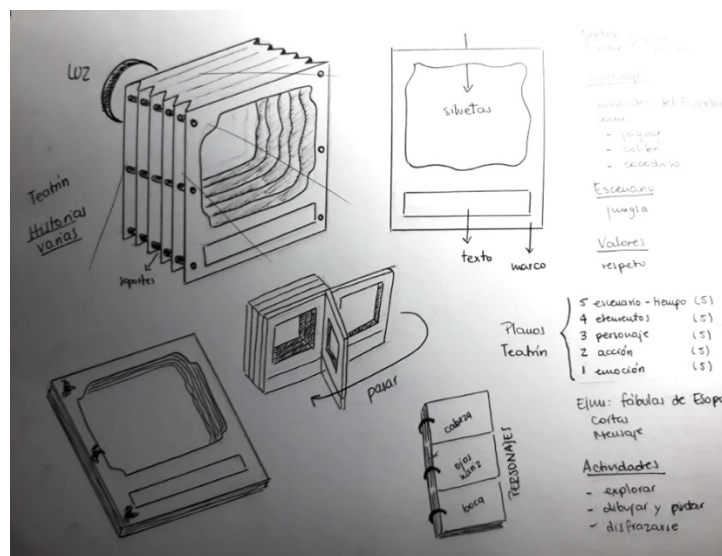 luz
Teatrín
Historias
varias
soportes
siluetas
texto
marco
pasar
cabeza
ojos
boca
PERSONAJES
- jaguar
- colibrí
- cocodrilo
Escenario
jungla
Valores
respeto
Planos
Teatrín
5 escenario - tiempo (5)
4 elementos (5)
3 personaje (5)
2 acción (5)
1 emoción (5)
fábulas de Esopo
Cortas
Mensaje
Actividades
- explorar
- dibujar y pintar
- disfrazarse